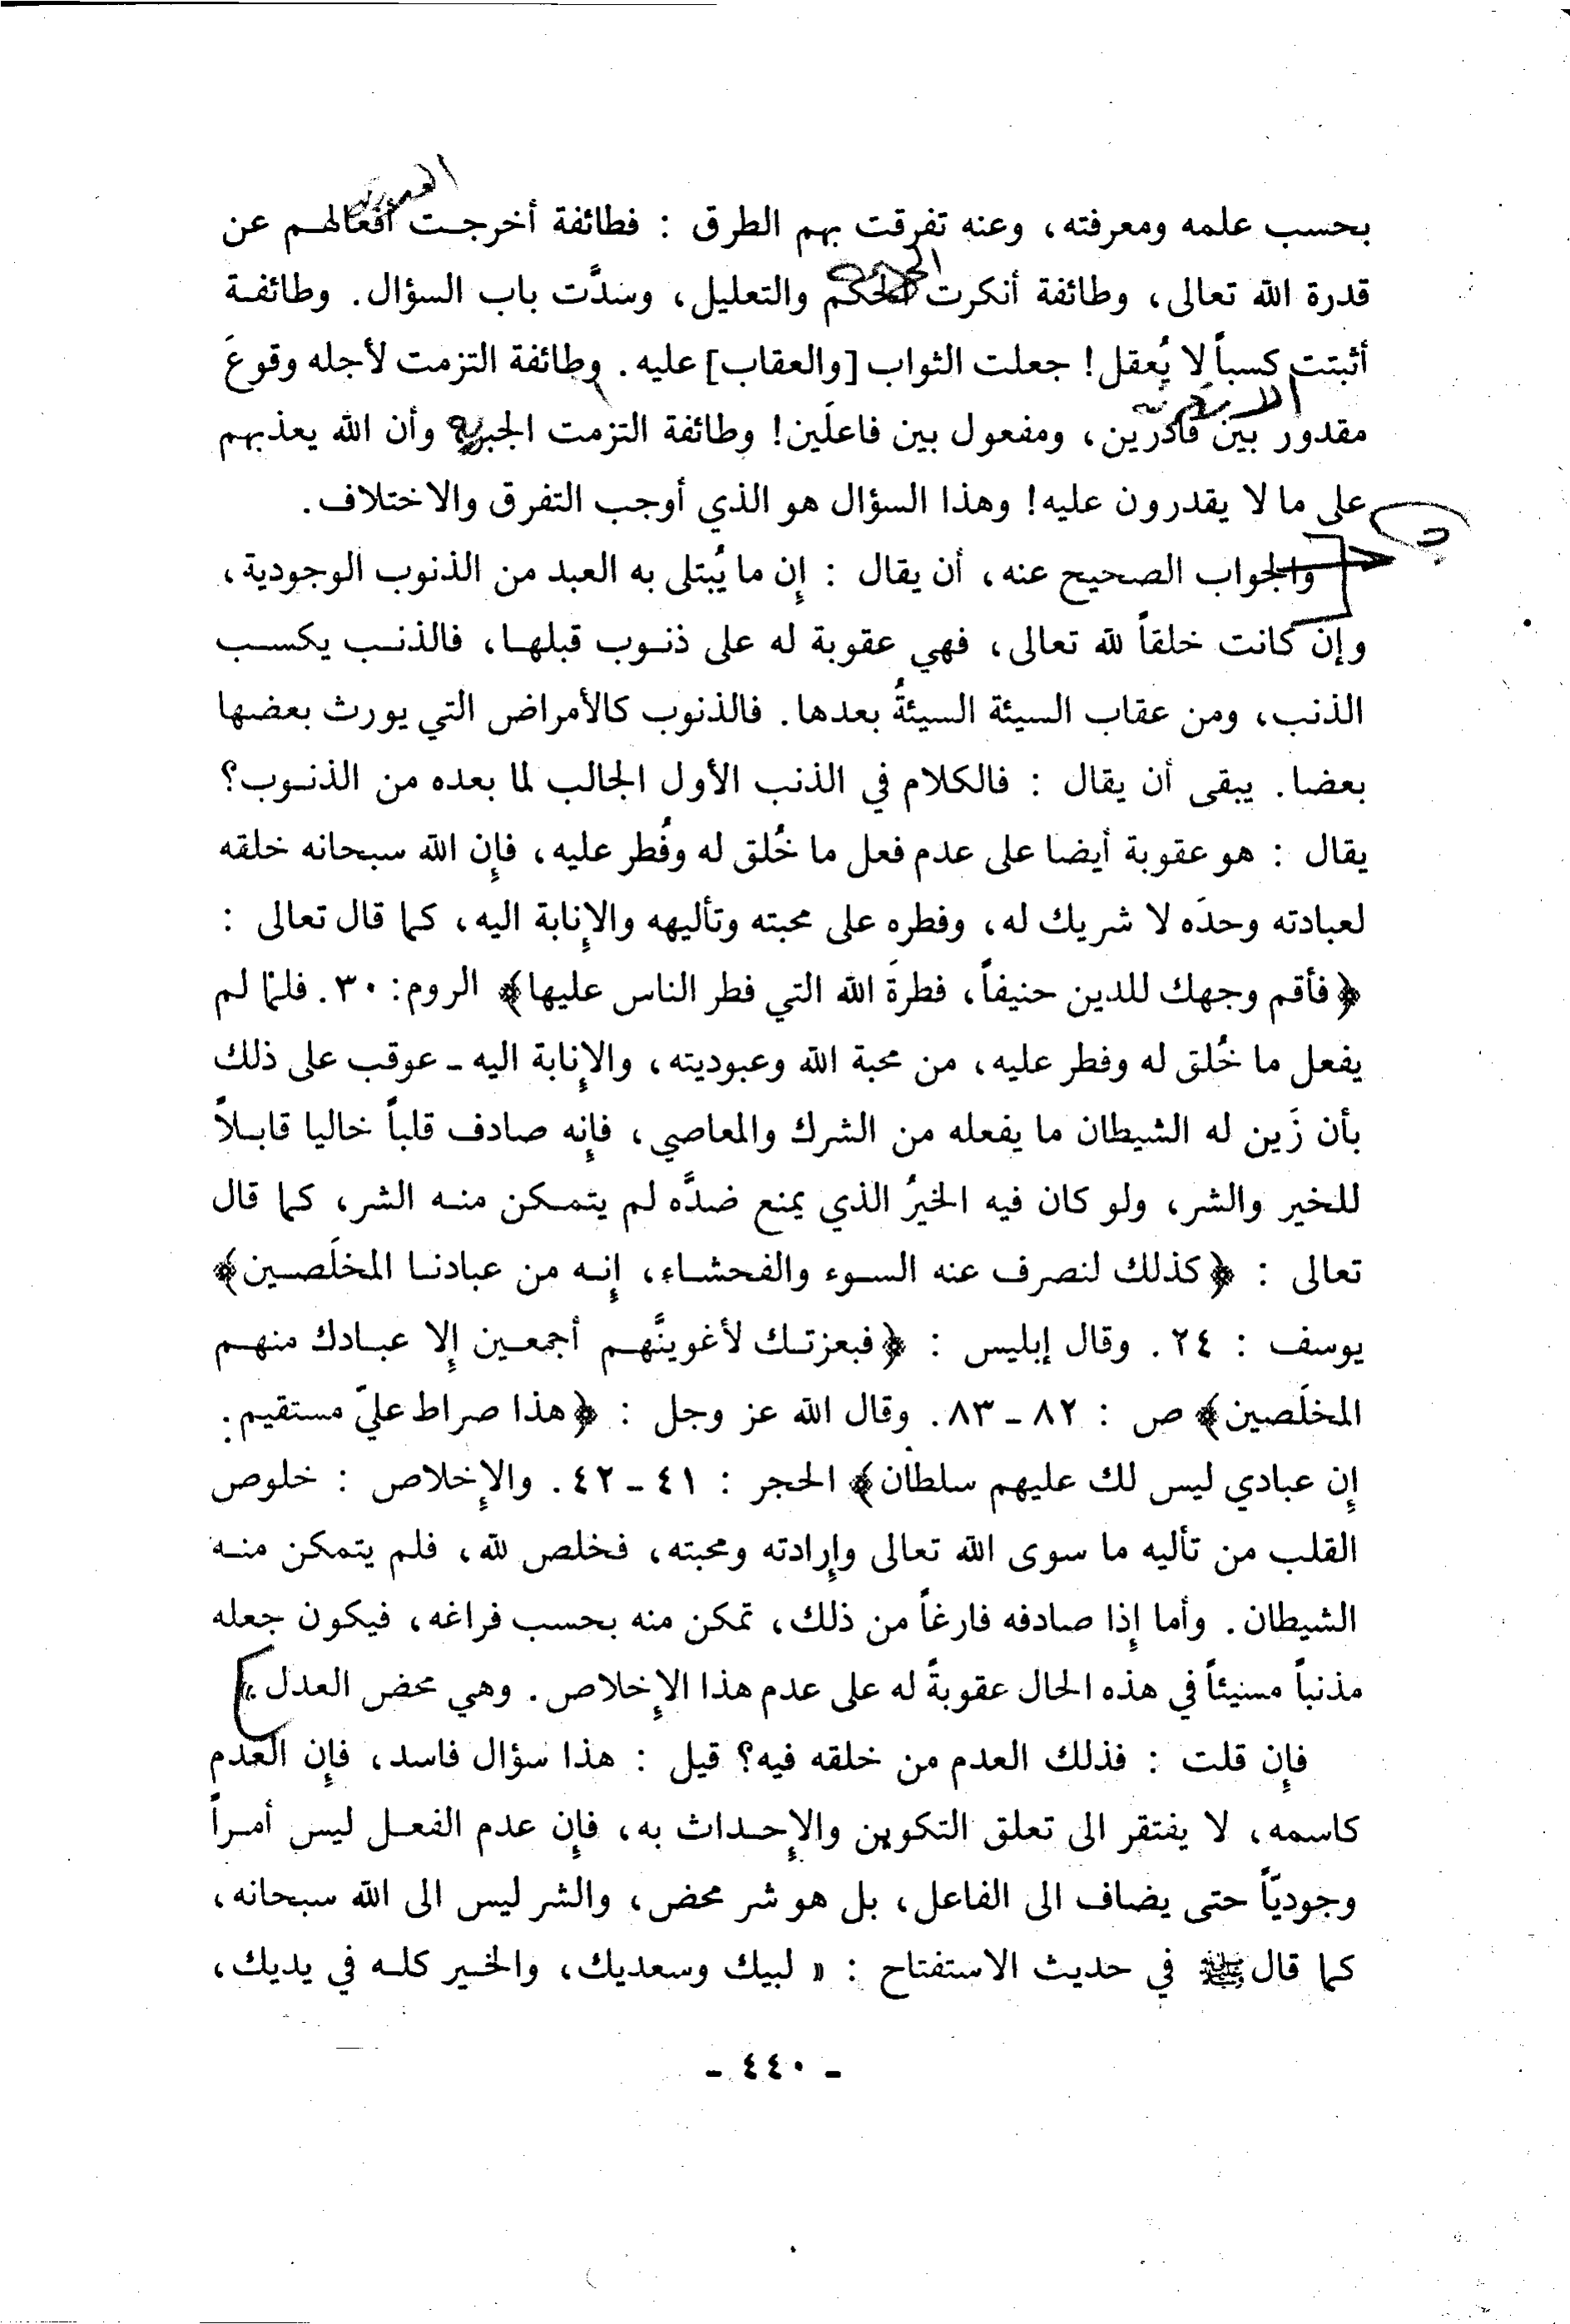 بحسب علمه ومعرفته، وعنه تفرقت بهم الطرق : فطائفة أخرجت أفعالهم عن
قدرة الله تعالى، وطائفة أنكرت الحكم والتعليل، وسدَّت باب السؤال. وطائفة
أثبتت كسباً لا يُعقل! جعلت الثواب [والعقاب] عليه. وطائفة التزمت لأجله وقوعَ
مقدور بين قادرين، ومفعول بين فاعلَين! وطائفة التزمت الجبر، وأن الله يعذبهم
على ما لا يقدرون عليه! وهذا السؤال هو الذي أوجب التفرق والاختلاف.
والجواب الصحيح عنه، أن يقال : إن ما يُبتلى به العبد من الذنوب الوجودية،
وإن كانت خلقاً لله تعالى، فهي عقوبة له على ذنوب قبلها، فالذنب يكسب
الذنب، ومن عقاب السيئة السيئةُ بعدها. فالذنوب كالأمراض التي يورث بعضها
بعضا. يبقى أن يقال : فالكلام في الذنب الأول الجالب لما بعده من الذنوب؟
يقال : هو عقوبة أيضا على عدم فعل ما خُلق له وفُطر عليه، فإن الله سبحانه خلقه
لعبادته وحدَه لا شريك له، وفطره على محبته وتأليهه والإنابة اليه، كما قال تعالى :
﴿فأقم وجهك للدين حنيفاً، فطرةَ الله التي فطر الناس عليها﴾ الروم: ٣٠. فلمّا لم
يفعل ما خُلق له وفطر عليه، من محبة الله وعبوديته، والإنابة اليه - عوقب على ذلك
بأن زَين له الشيطان ما يفعله من الشرك والمعاصي، فإنه صادف قلباً خاليا قابلاً
للخير والشر، ولو كان فيه الخيرُ الذي يمنع ضدَّه لم يتمكن منه الشر، كما قال
تعالى : ﴿كذلك لنصرف عنه السوء والفحشاء، إنه من عبادنا المخلَصين﴾
يوسف : ٢٤. وقال إبليس : ﴿فبعزتك لأغوينَّهم أجمعين إلا عبادك منهم
المخلَصين﴾ ص : ٨٢ - ٨٣. وقال الله عز وجل : ﴿هذا صراط عليّ مستقيم.
إن عبادي ليس لك عليهم سلطان﴾ الحجر : ٤١ - ٤٢. والإخلاص : خلوص
القلب من تأليه ما سوى الله تعالى وإرادته ومحبته، فخلص لله، فلم يتمكن منه
الشيطان. وأما إذا صادفه فارغاً من ذلك، تمكن منه بحسب فراغه، فيكون جعله
مذنباً مسيئاً في هذه الحال عقوبةً له على عدم هذا الإخلاص. وهي محض العدل.
فإن قلت : فذلك العدم من خلقه فيه؟ قيل : هذا سؤال فاسد، فإن العدم
كاسمه، لا يفتقر الى تعلق التكوين والإحداث به، فإن عدم الفعل ليس أمراً
وجوديّاً حتى يضاف الى الفاعل، بل هو شر محض، والشر ليس الى الله سبحانه،
كما قال ﷺ في حديث الاستفتاح : « لبيك وسعديك، والخير كله في يديك،
- ٤٤٠ -